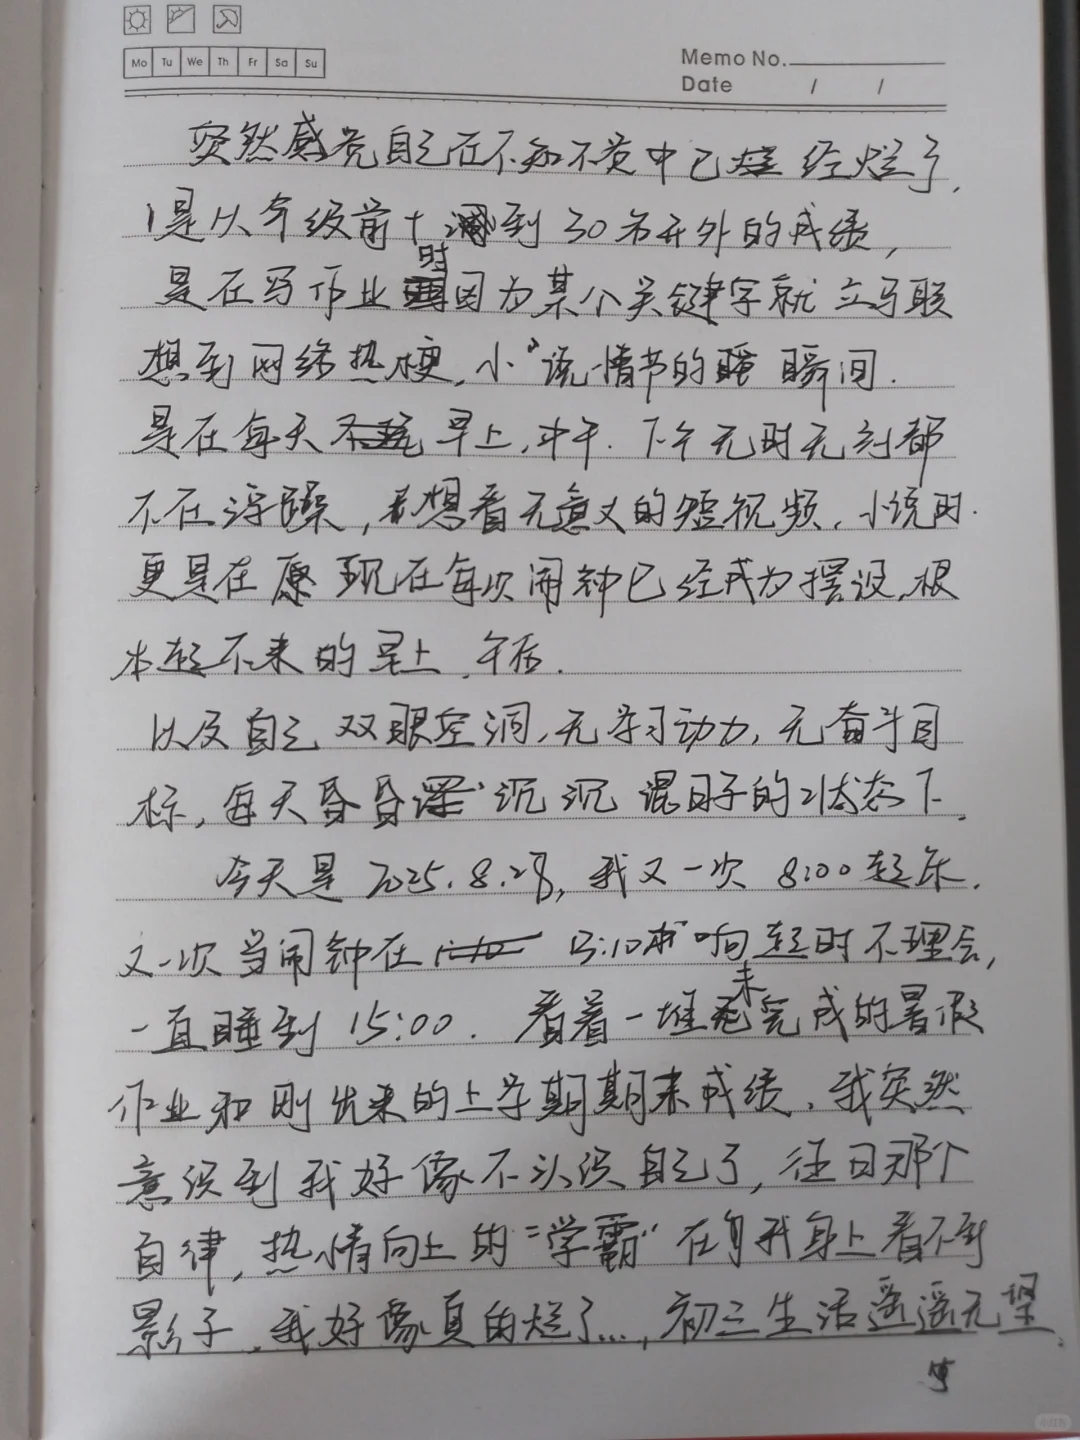 Mo Tu We Th Fr Sa Su
Memo No.
Date / /
突然感觉自己在不知不觉中已经烂了,
是从年级前十到30名开外的成绩,
是在写作业时因为某个关键字就立马联
想到网络热梗,小说情节的瞬间.
是在每天早上,中午.下午无时无刻都
不在浮躁,想看无意义的短视频,小说时.
更是在 现在每次闹钟已经成为摆设,根
本起不来的早上,午后.
以及自己双眼空洞,无学习动力,无奋斗目
标,每天昏昏沉沉混日子的状态下.
今天是2025.8.28,我又一次8:00起床.
又一次当闹钟在13:10响起时不理会,
一直睡到15:00.看着一堆未完成的暑假
作业和刚出来的上学期期末成绩,我突然
意识到我好像不认识自己了,往日那个
自律,热情向上的“学霸”在我身上看不到
影子,我好像真的烂了...,初三生活遥遥无望.